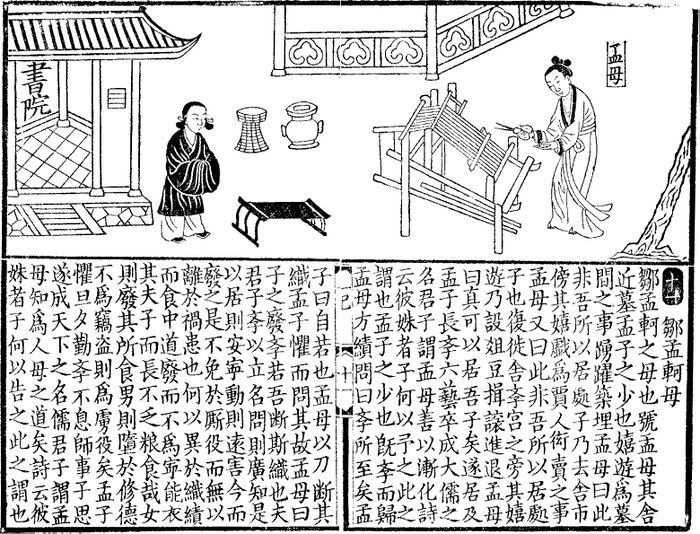 孟母
書院
十一
鄒孟軻母
鄒孟軻之母也號孟母其舍
近墓孟子之少也嬉遊爲墓
間之事踴躍築埋孟母曰此
非吾所以居處子乃去舍市
傍其嬉戲爲賈人衒賣之事
孟母又曰此非吾所以居處
子也復徙舍斈宮之旁其嬉
遊乃設俎豆揖讓進退孟母
曰真可以居吾子矣遂居及
孟子長斈六藝卒成大儒之
名君子謂孟母善以漸化詩
云彼姝者子何以予之此之
謂也孟子之少也既斈而歸
孟母方績問曰斈所至矣孟
子曰自若也孟母以刀斷其
織孟子懼而問其故孟母曰
子之廢斈若吾斷斯織也夫
君子斈以立名問則廣知是
以居則安寧動則遠害今而
廢之是不免於厮役而無以
離於禍患也何以異於織績
而食中道廢而不爲寧能衣
其夫子而長不乏粮食哉女
則廢其所食男則墮於修德
不爲竊盜則爲虜役矣孟子
懼旦夕勤斈不息師事子思
遂成天下之名儒君子謂孟
母知爲人母之道矣詩云彼
姝者子何以告之此之謂也